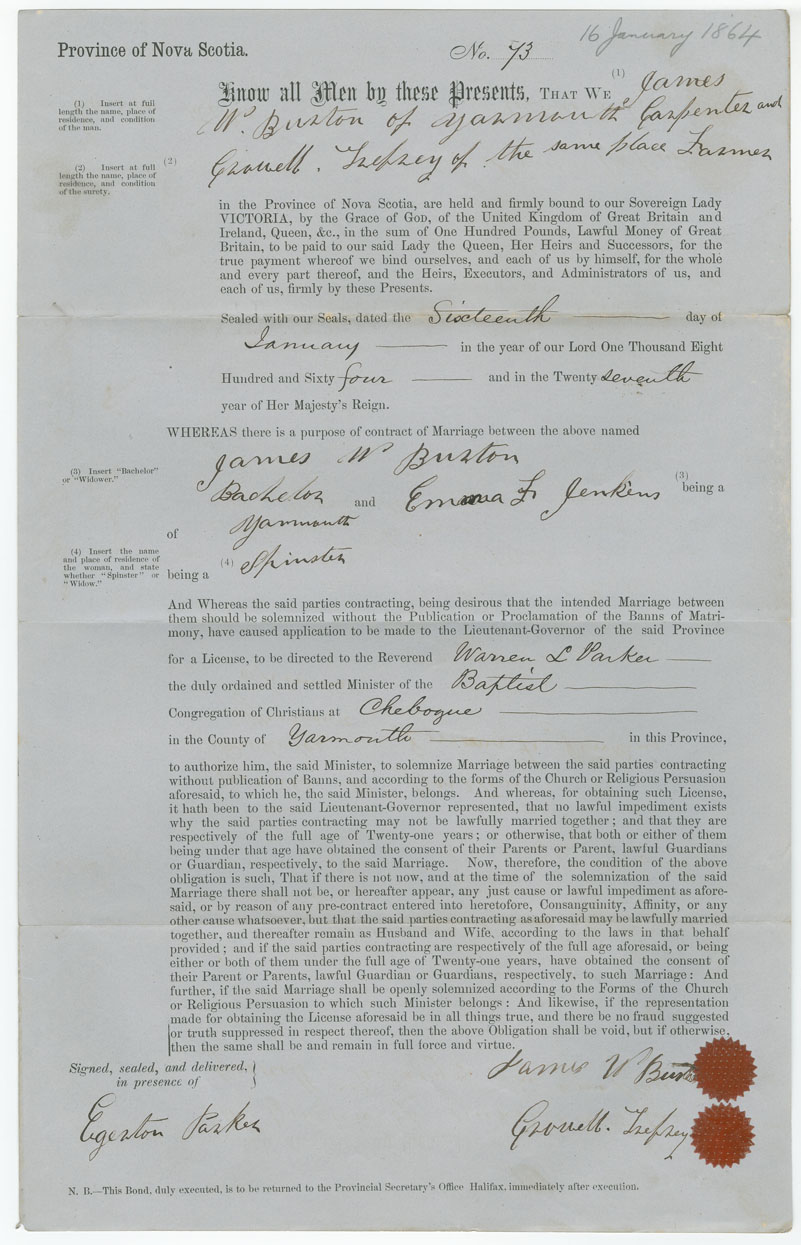 16 January 1864
Province of Nova Scotia.
No. 73
Know all Men by these Presents, THAT WE (1) James
W. Burton of Yarmouth Carpenter and
(2) Crowell. Trefrey of the same place Farmer
(1) Insert at full
length the name, place of
residence, and condition
of the man.
(2) Insert at full
length the name, place of
residence, and condition
of the surety.
in the Province of Nova Scotia, are held and firmly bound to our Sovereign Lady
VICTORIA, by the Grace of GOD, of the United Kingdom of Great Britain and
Ireland, Queen, &c., in the sum of One Hundred Pounds, Lawful Money of Great
Britain, to be paid to our said Lady the Queen, Her Heirs and Successors, for the
true payment whereof we bind ourselves, and each of us by himself, for the whole
and every part thereof, and the Heirs, Executors, and Administrators of us, and
each of us, firmly by these Presents.
Sealed with our Seals, dated the Sixteenth day of
January in the year of our Lord One Thousand Eight
Hundred and Sixty four and in the Twenty seventh
year of Her Majesty's Reign.
WHEREAS there is a purpose of contract of Marriage between the above named
James W Burton
(3) being a
Bachelor and Emma F. Jenkins
of Yarmouth
being a (4) Spinster
(3) Insert "Bachelor"
or "Widower."
(4) Insert the name
and place of residence of
the woman, and state
whether "Spinster" or
"Widow."
And Whereas the said parties contracting, being desirous that the intended Marriage between
them should be solemnized without the Publication or Proclamation of the Banns of Matri-
mony, have caused application to be made to the Lieutenant-Governor of the said Province
for a License, to be directed to the Reverend Warren L Parker
the duly ordained and settled Minister of the Baptist
Congregation of Christians at Chebogue
in the County of Yarmouth in this Province,
to authorize him, the said Minister, to solemnize Marriage between the said parties contracting
without publication of Banns, and according to the forms of the Church or Religious Persuasion
aforesaid, to which he, the said Minister, belongs. And whereas, for obtaining such License,
it hath been to the said Lieutenant-Governor represented, that no lawful impediment exists
why the said parties contracting may not be lawfully married together; and that they are
respectively of the full age of Twenty-one years; or otherwise, that both or either of them
being under that age have obtained the consent of their Parents or Parent, lawful Guardians
or Guardian, respectively, to the said Marriage. Now, therefore, the condition of the above
obligation is such, That if there is not now, and at the time of the solemnization of the said
Marriage there shall not be, or hereafter appear, any just cause or lawful impediment as afore-
said, or by reason of any pre-contract entered into heretofore, Consanguinity, Affinity, or any
other cause whatsoever, but that the said parties contracting as aforesaid may be lawfully married
together, and thereafter remain as Husband and Wife, according to the laws in that behalf
provided; and if the said parties contracting are respectively of the full age aforesaid, or being
either or both of them under the full age of Twenty-one years, have obtained the consent of
their Parent or Parents, lawful Guardian or Guardians, respectively, to such Marriage: And
further, if the said Marriage shall be openly solemnized according to the Forms of the Church
or Religious Persuasion to which such Minister belongs: And likewise, if the representation
made for obtaining the License aforesaid be in all things true, and there be no fraud suggested
or truth suppressed in respect thereof, then the above Obligation shall be void, but if otherwise,
then the same shall be and remain in full force and virtue.
Signed, sealed, and delivered,
in presence of
James W Burton
Egerton Parker
Crowell. Trefrey
N. B.—This Bond, duly executed, is to be returned to the Provincial Secretary's Office Halifax, immediately after execution.